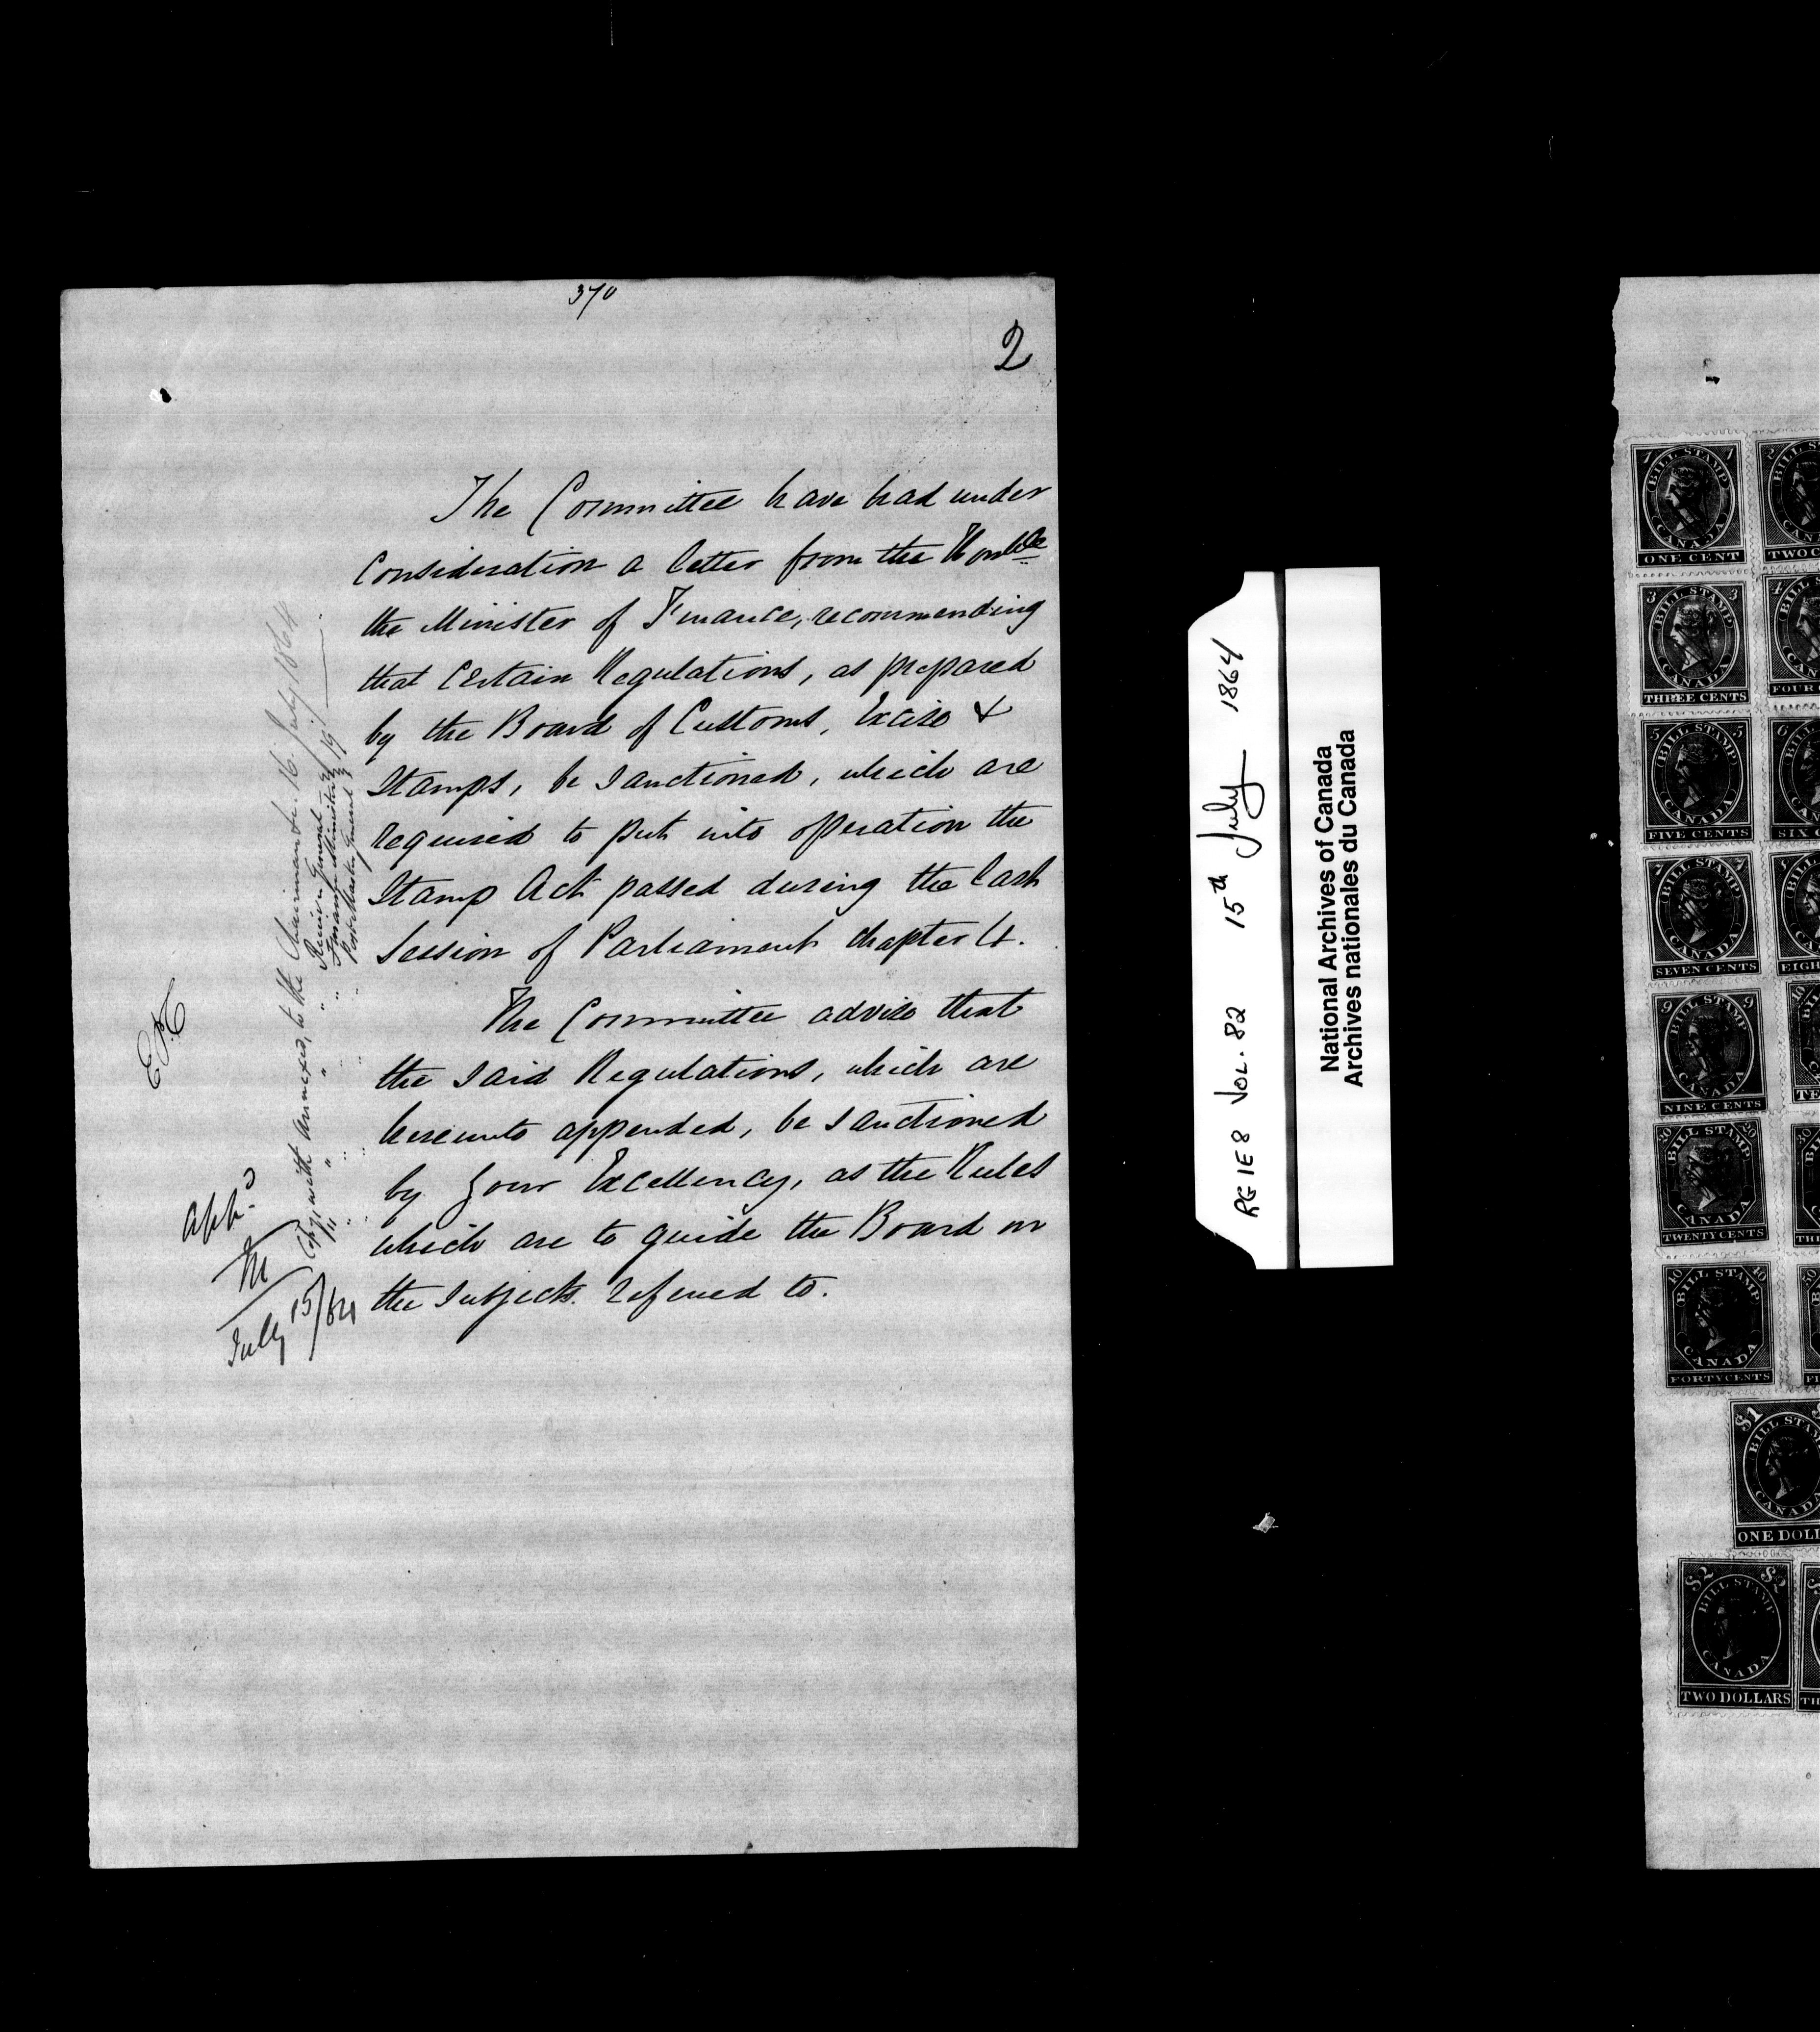 370
2
The Committee have had under
Consideration a letter from the Honble
the Minister of Finance, recommending
that Certain Regulations, as prepared
by the Board of Customs, Excise &
Stamps, be sanctioned, which are
required to put into operation the
Stamp Act passed during the last
Session of Parliament Chapter 4.
The Committee advise that
the said Regulations, which are
hereunto appended, be sanctioned
by Your Excellency, as the Rules
which are to guide the Board on
the subjects referred to.
Appd
M
July 15/64
Copy with annexes, to the Chairman do. 16. July 1864
" " " " Receiver General
" " " " Finance Minister
" " " " Post Master General 19
RG 1E8 VOL. 82 15th July 1864
National Archives of Canada
Archives nationales du Canada
1 1
BILL STAMP
CANADA
ONE CENT
2
BILL S
TWO C
3 3
BILL STAMP
CANADA
THREE CENTS
4
FOUR
5 5
BILL STAMP
CANADA
FIVE CENTS
6
SIX C
7 7
BILL STAMP
CANADA
SEVEN CENTS
EIGH
9 9
BILL STAMP
CANADA
NINE CENTS
10
TE
20 20
BILL STAMP
CANADA
TWENTY CENTS
30
THI
40 40
BILL STAMP
CANADA
FORTY CENTS
FI
$1
BILL STAMP
CANADA
ONE DOLL
$2 $2
BILL STAMP
CANADA
TWO DOLLARS
TH